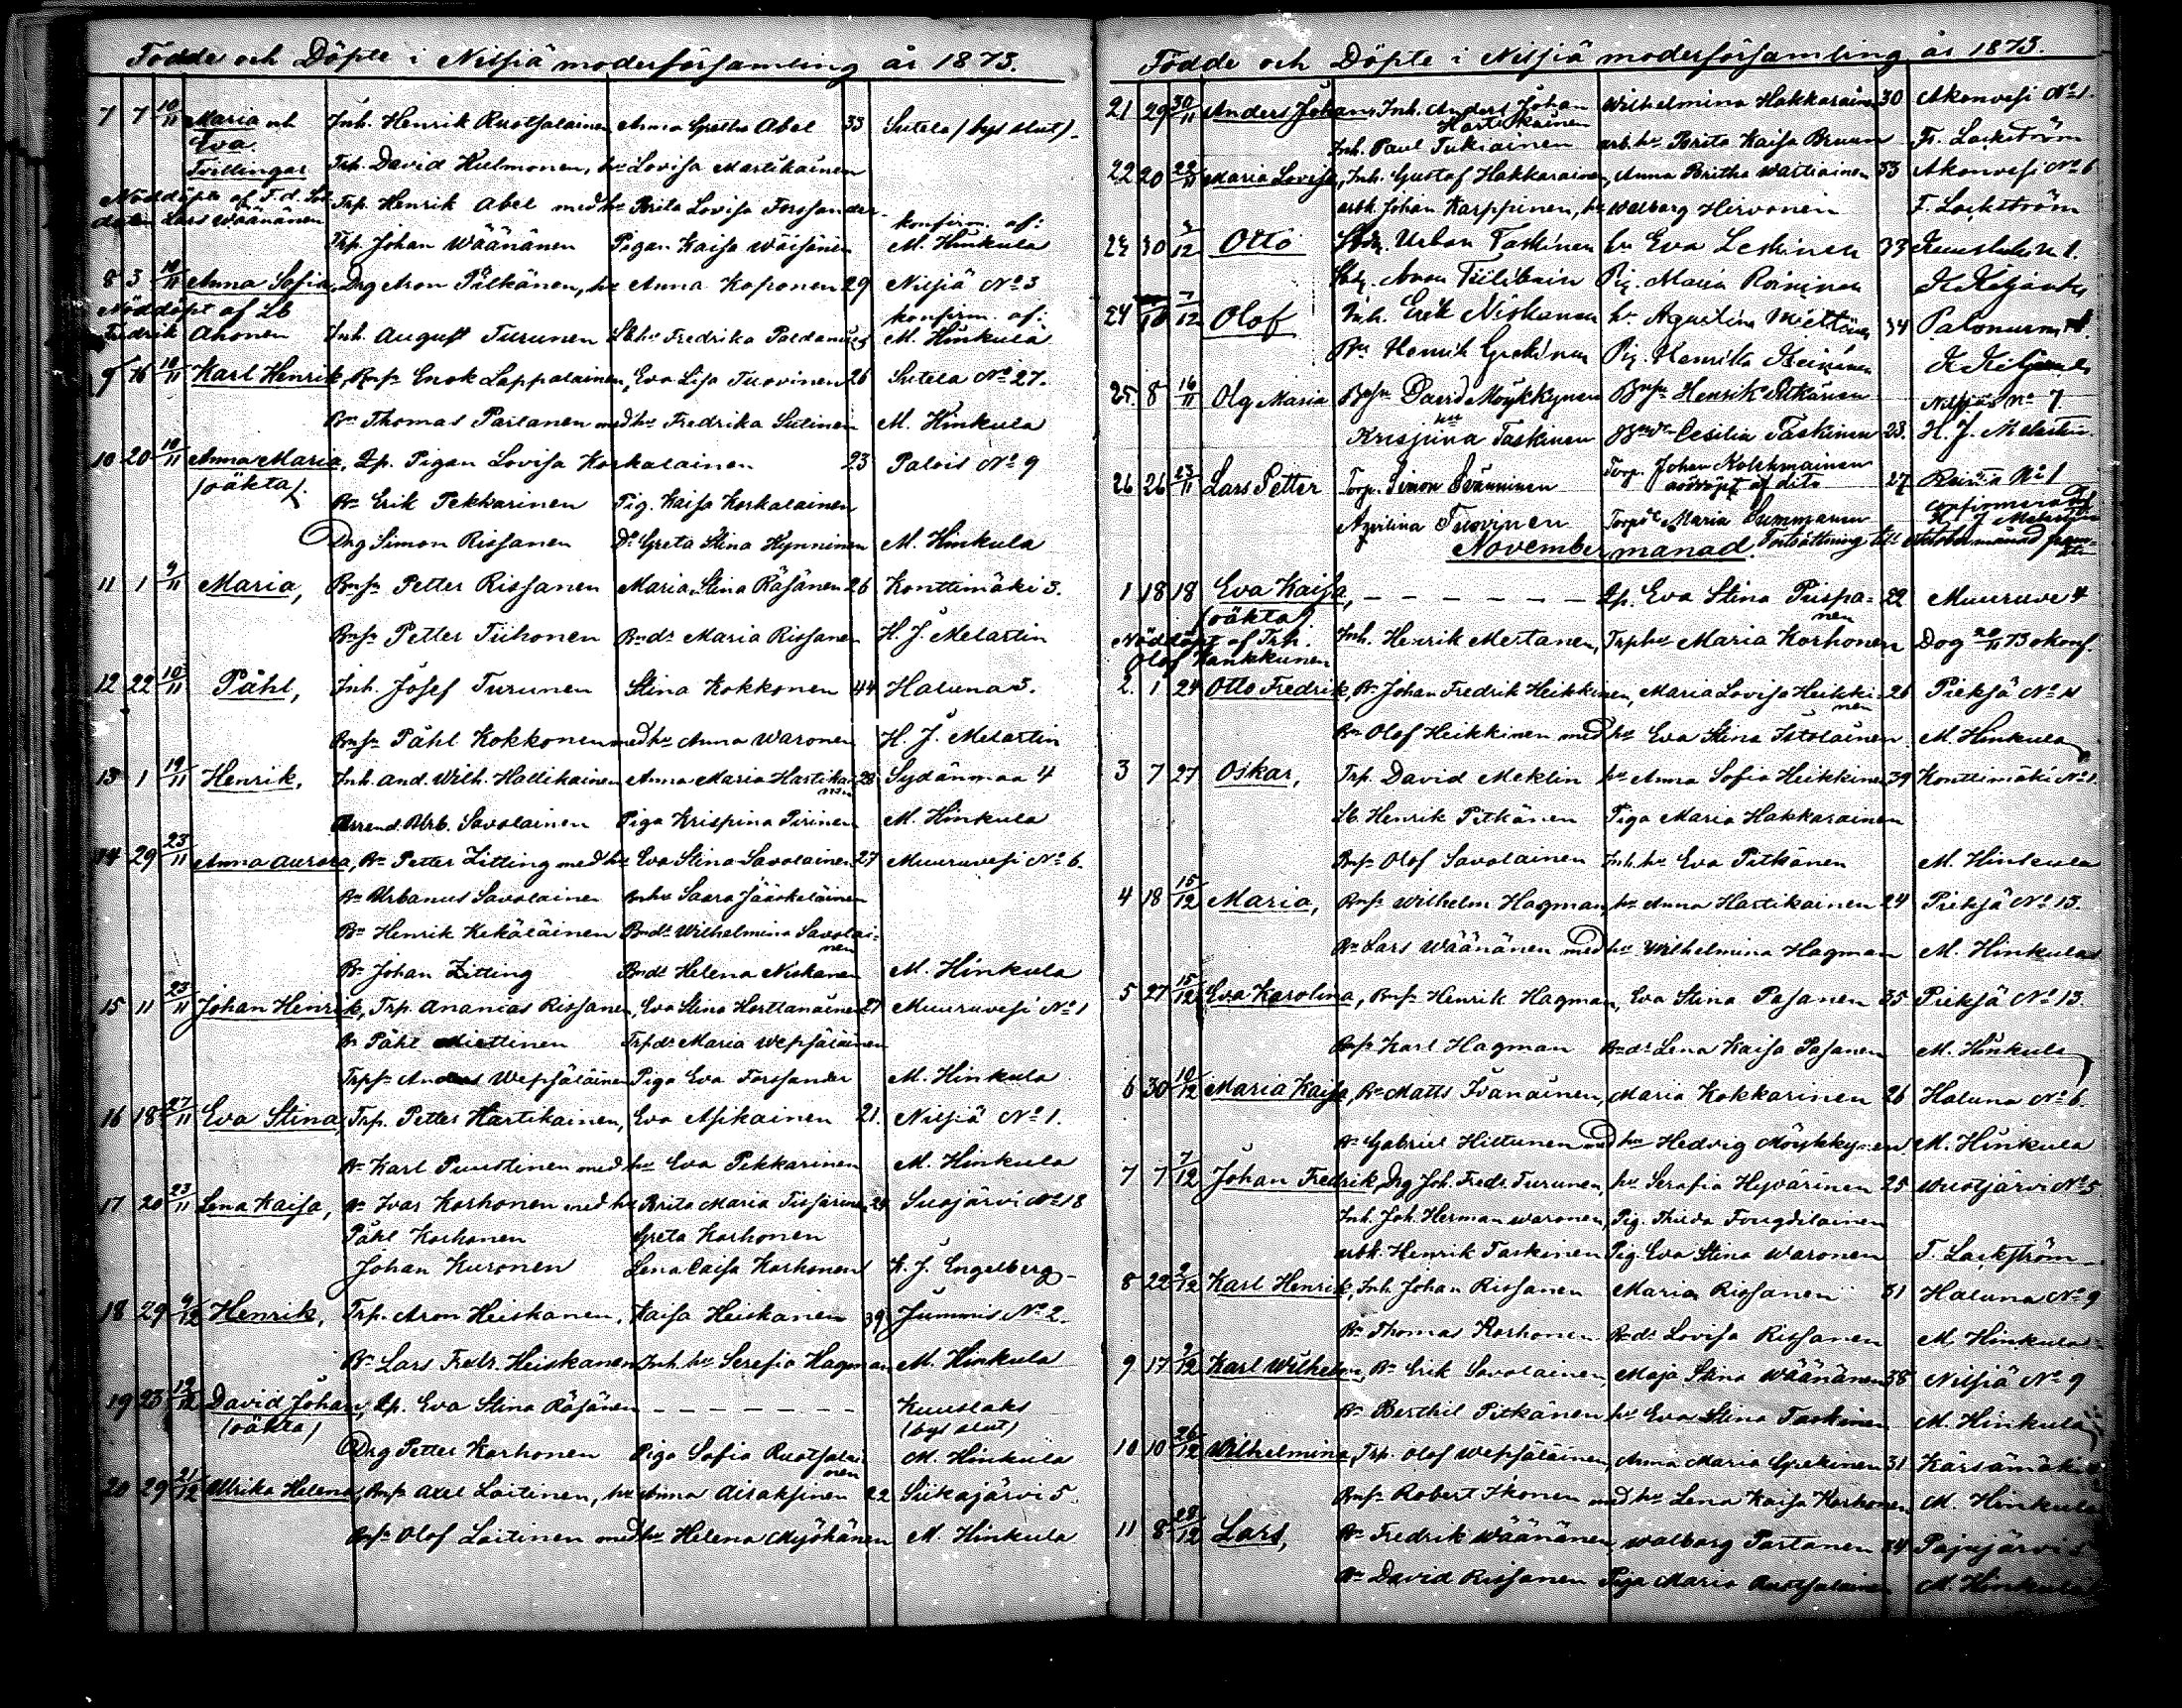 Födde och Döpte i Nilsiä moderförsamling år 1873.
7 7 10/11 Maria och Inh. Henrik Ruotsalainen Anna Greetha Abel 33 Sutela (bys slut)
Eva
Tvillingar Trp. David Hulmonen, hu Lovisa Martikainen
Nöddöpte af F.d. Sol- Trp. Henrik Abel med hu Brita Lovisa Forssander
daten Lars Wäänänen konfirm. af:
Trp. Johan Wäänänen Pigan Kaisa Wäisänen M. Hinkula
8 3 10/11 Anna Sofia, Drg Aron Pälkänen, hu Anna Koponen 29 Nilsiä No 3
Nöddöpt af Lb konfirm. af:
Fredrik Ahonen Inh. August Turunen Lbhu Fredrika Paldanius M. Hinkula
9 16 10/11 Karl Henrik, Bmsn Enok Lappalainen, Eva Lisa Tuovinen 26 Sutela No 27.
Bn Thomas Partanen med hu Fredrika Sutinen M. Hinkula
10 20 10/11 Anna Maria, Lp. Pigan Lovisa Korkalainen 23 Palois No 9
(oäkta).
Bn Erik Pekkarinen Pig. Kaisa Korkalainen
Drg Simon Rissanen Do Greta Stina Hynninen M. Hinkula
11 1 9/11 Maria, Bmsn Petter Rissanen Maria Stina Räsänen 26 Konttimäki 3.
Bmsn Petter Tiihonen Bmdr Maria Rissanen H. J. Melartin
12 22 10/11 Påhl, Inh. Josef Turunen Stina Kokkonen 44 Haluna 3.
Bmsn Påhl Kokkonen med hu Anna Waronen H. J. Melartin
13 1 19/11 Henrik, Inh. And. Wilh. Hallikainen Anna Maria Hartikai- 28 Sydänmaa 4
nen
Arrend. Urb. Savolainen Piga Krispina Pirinen M. Hinkula
14 29 23/11 Anna Aurora, Bn Petter Zitting med hu Eva Stina Savolainen 27 Muuruvesi No 6.
Bn Urbanus Savolainen Bmhu Saara Jääskeläinen
Bn Henrik Kekäläinen Bmdr Wilhelmina Savolai-
nen
Bn Johan Zitting Bmdr Helena Niskanen M. Hinkula
15 11 23/11 Johan Henrik, Trp. Ananias Rissanen, Eva Stina Horttanainen 27 Muuruvesi No 1
Bn Påhl Miettinen Trpdr Maria Wepsäläinen
Trpsn Anders Wepsäläinen Piga Eva Forssander M. Hinkula
16 18 27/11 Eva Stina, Trp. Petter Hartikainen, Eva Asikainen 21. Nilsiä No 1.
Bn Karl Puustinen med hu Eva Pekkarinen M. Hinkula
17 20 23/11 Lena Kaisa, Bn Ivar Korhonen med hu Brita Maria 24 Suojärvi No 18
Påhl Korhonen Greta Korhonen
Johan Kuronen Lena Caisa Korhonen K. J. Engelberg
18 29 9/12 Henrik, Trp. Aron Heiskanen, Kaisa Heiskanen 39 Jummis No 2.
Bn Lars Fredr. Heiskanen Inh. hu Serefia Hagman M. Hinkula
19 23 19/12 David Johan, Lp. Eva Stina Räsänen – – – – – – – Kuuslaks
(oäkta) (bys slut)
Drg Petter Korhonen Piga Sofia Ruotsalai- M. Hinkula
nen
20 29 21/12 Ulrika Helena, Bmsn Axel Laitinen, hu Anna Airaksinen 22 Siikajärvi 5.
Bmsn Olof Laitinen med hu Helena Myöhänen M. Hinkula
Födde och Döpte i Nilsiä moderförsamling år 1873.
21 29 30/11 Anders Johan, Inh. Anders Johan Wilhelmina Hakkarainen 30 Akonvesi No 1.
Hartikainen
Inh. Paul Tukiainen arb. hu Brita Kaisa Bruun F. Lackström
22 20 22/11 Maria Lovisa, Inh. Gustaf Hakkarainen, Anna Britha Wartiainen 33 Akonvesi No 6
arbk. Johan Karppinen, hu Walborg Hirvonen F. Lackström
23 30 12 Otto Urban Taskinen hu Eva Leskinen 33
Pig. Maria Roininen
24 7/12 Olof Inh. Erik Niskanen hu Agustina Miettinen 34
Bn Henrik Pig. Henrika
25. 8 16/11 Olg Maria Bmsn David Möykkynen Bmsn Henrik Pitkänen Nilsiä No 7.
Krispina Taskinen Cesilia Taskinen 23. H. J. Melartin
26 26 23/11 Lars Petter Torp. Simon Torp. Johan Kolehmainen 27 No 1
nöddöpt af dito confirmerad af
Aprilina Tuovinen Maria H. J. Melartin
November månad. Fortsättning till October månad
1 18 18 Eva Kaisa, – – – – – – Lp. Eva Stina Piispa- 22 Muuruve 4
(oäkta) nen
Nöddöpt af Trh. Inh. Henrik Mertanen, Trphu Maria Korhonen Dog 20/11 73 okonf.
Olof Kankkunen
2. 1 24 Otto Fredrik, Bn Johan Fredrik Heikkinen, Maria Lovisa Heikki- 26 Pieksä No 4
nen
Bn Olof Heikkinen med hu Eva Stina M. Hinkula
3 7 27 Oskar, Trp. David Meklin hu Anna Sofia Heikkinen 39 Konttimäki No 1.
Lb. Henrik Pitkänen Piga Maria Hakkarainen
Bmsn Olof Savolainen Inh. hu Eva Pitkänen M. Hinkula
4 18 15/12 Maria, Bmsn Wilhelm Hagman, hu Anna Hartikainen 24 Pieksä No 13.
Bn Lars Wäänänen med hu Wilhelmina Hagman M. Hinkula
5 27 15/12 Eva Karolina, Bmsn Henrik Hagman, Eva Stina Pasanen 35 Pieksä No 13.
Bmsn Karl Hagman Bmdr Lena Kaisa Pasanen M. Hinkula
6 30 10/12 Maria Kaisa, Bn Matts Ivanainen, Maria Kokkarinen 26 Haluna No 6.
Bn Gabriel Hiltunen med hu Hedvig Möykkynen M. Hinkula
7 7 7/12 Johan Fredrik, Drg Joh. Fredr. Turunen, hu Serafia Hyvärinen 25 Wuotjärvi No 5
Inh. Joh. Herman Waronen, Pig. Thilda Fougdilainen
arbk. Henrik Taskinen Pig. Eva Stina Waronen F. Lackström
8 22 9/12 Karl Henrik, Inh. Johan Rissanen Maria Rissanen 31 Haluna No 9
Bn Thomas Korhonen Bmdr Lovisa Rissanen M. Hinkula
9 17 9/12 Karl Wilhelm, Bn Erik Savolainen, Maja Stina Wäänänen 38 Nilsiä No 9
Bn Berthil Pitkänen hu Eva Stina Taskinen M. Hinkula
10 10 26/12 Wilhelmina, Trp. Olof Wepsäläinen, Anna Maria 31 Kärsämäki
Bmsn Robert Ikonen med hu Lena Kaisa Korhonen M. Hinkula
11 8 28/12 Lars, Bn Fredrik Wäänänen, Walborg Partanen 34 Pajujärvi 5
Bn David Rissanen Piga Maria Ruotsalainen M. Hinkula